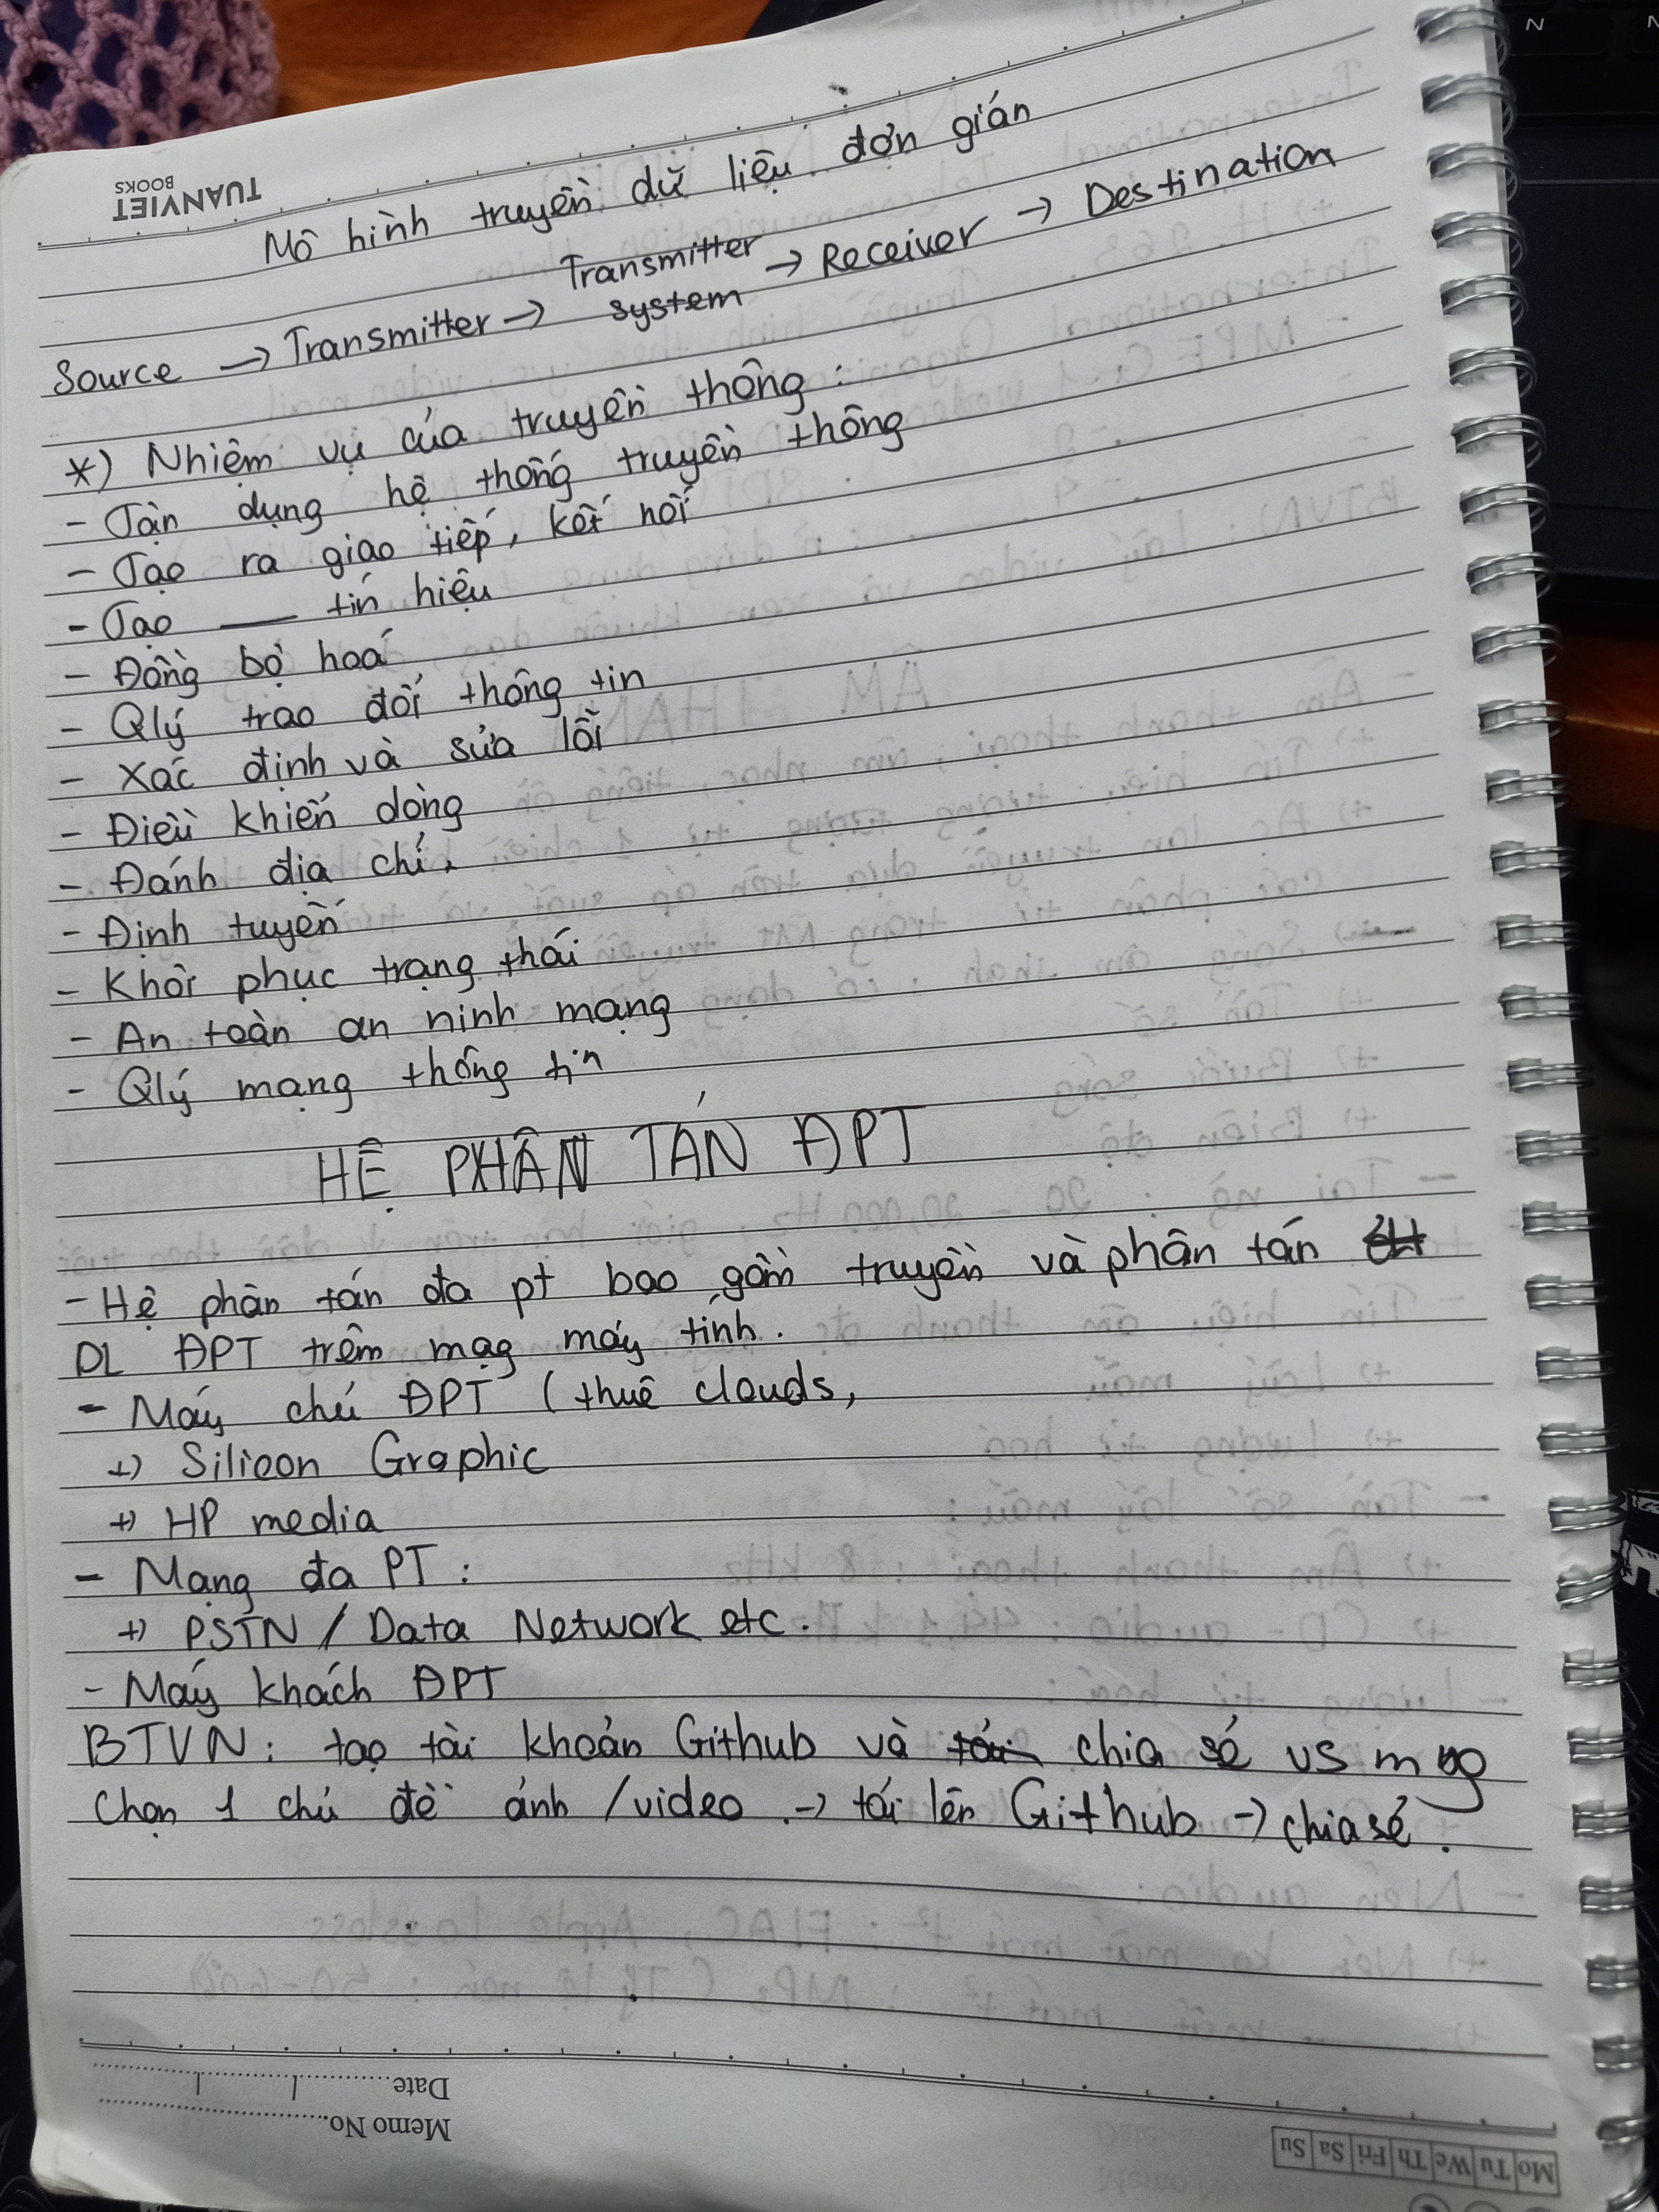 TUANVIET
BOOKS
Mô hình truyền dữ liệu đơn giản
Source → Transmitter → Transmitter system → Receiver → Destination
*) Nhiệm vụ của truyền thông :
- Tận dụng hệ thống truyền thông
- Tạo ra giao tiếp, kết nối
- Tạo —— tín hiệu
- Đồng bộ hoá
- Qlý trao đổi thông tin
- Xác định và sửa lỗi
- Điều khiển dòng
- Đánh địa chỉ.
- Định tuyến
- Khôi phục trạng thái
- An toàn an ninh mạng
- Qlý mạng thông tin
HỆ PHÂN TÁN ĐPT
- Hệ phân tán đa pt bao gồm truyền và phân tán
DL ĐPT trêm mạg máy tính.
- Máy chủ ĐPT (thuê clouds,
+) Silicon Graphic
+) HP media
- Mạng đa PT :
+) PSTN / Data Network etc.
- Máy khách ĐPT
BTVN : tạo tài khoản Github và chia sẻ vs mng
Chọn 1 chủ đề ảnh /video → tải lên Github → chia sẻ.
Date
Memo No.
Mo Tu We Th Fri Sa Su